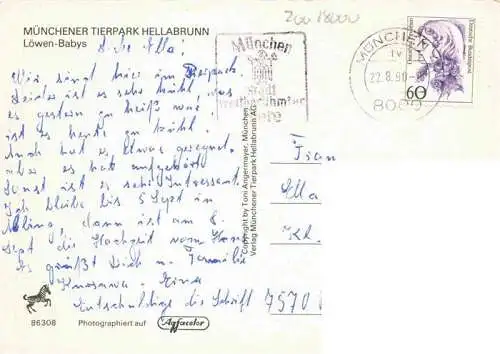 MÜNCHENER TIERPARK HELLABRUNN
Löwen-Babys
Liebe Ella!
Wir sind hier im Tierpark.
Leider ist es sehr kühl, was
gestern zu heiß war
ist es heute zu kühl.
Auch hat es etwas geregnet,
aber es hat aufgehört
Sonst ist es sehr Interessant.
Ich bleibe bis 5 Sept in
dann ist am 8.
Sept die Hochzeit vom
Es grüßt Dich u. Familie
Entschuldige die Schrift
86308 Photographiert auf Agfacolor
Copyright by Toni Angermayer, München
Verlag Münchener Tierpark Hellabrunn AG
Zoo
München
Stadt
MÜNCHEN
22.8.90
Deutsche Bundespost
60
Frau
Ella
Kl.
7570